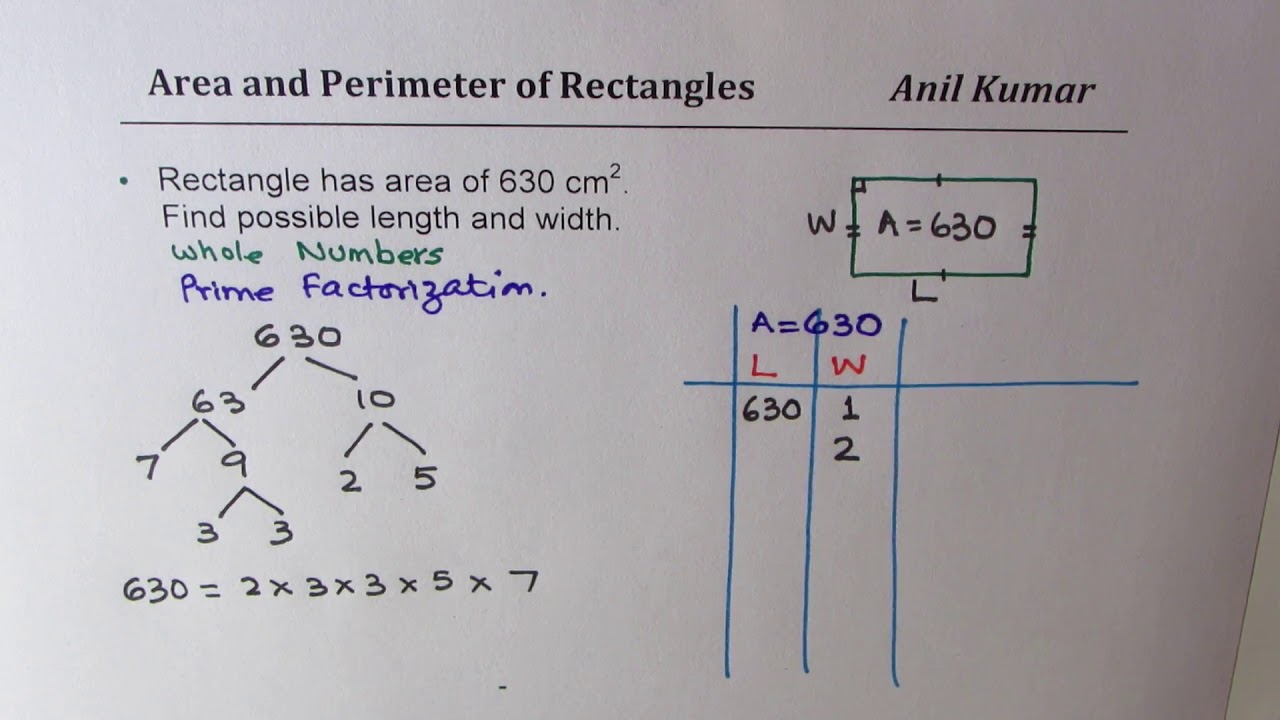 Area and Perimeter of Rectangles Anil Kumar
• Rectangle has area of 630 cm².
Find possible length and width.
Whole Numbers
Prime Factorization.
630
63 10
7 9 2 5
3 3
630 = 2 × 3 × 3 × 5 × 7
W A = 630
L
A = 630
L W
630 1
2